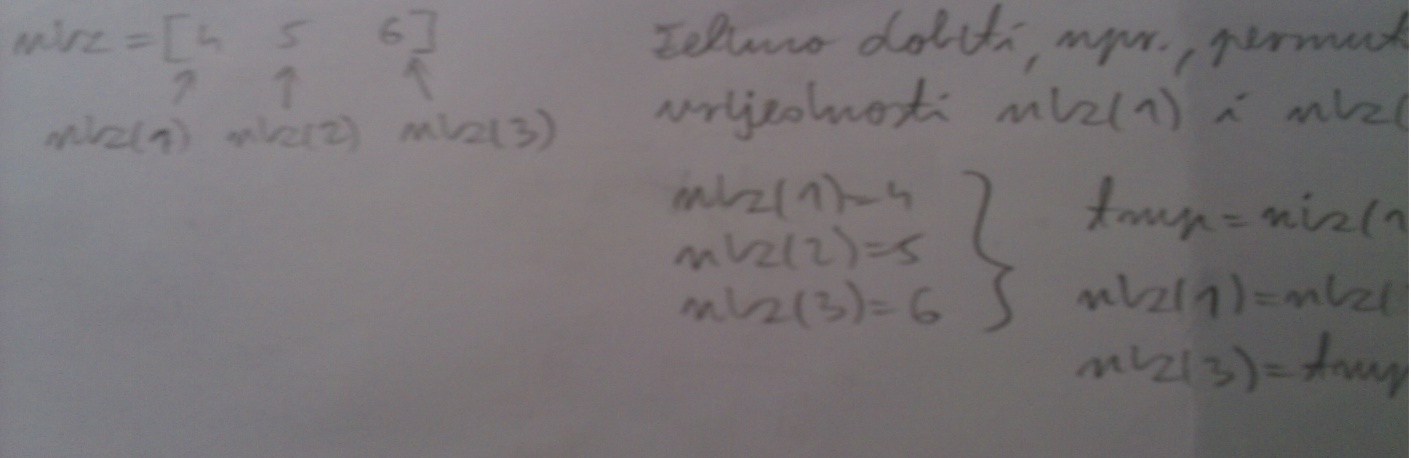 niz = [4 5 6]
niz(1) niz(2) niz(3)
Želimo dobiti, npr., permut
vrijednosti niz(1) i niz(
niz(1)=4
niz(2)=5
niz(3)=6
tmp = niz(1
niz(1)=niz(
niz(3)=tmp